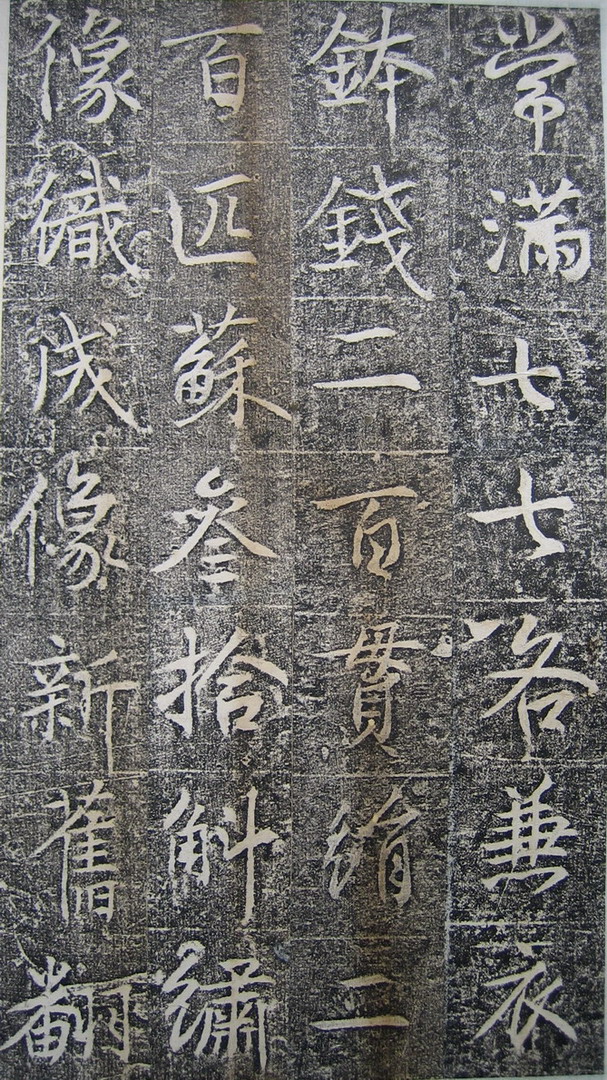 常滿七七咯兼衣
鉢錢二百貫絹二
百匹蘇叄拾斛繡
像織成像新舊翻